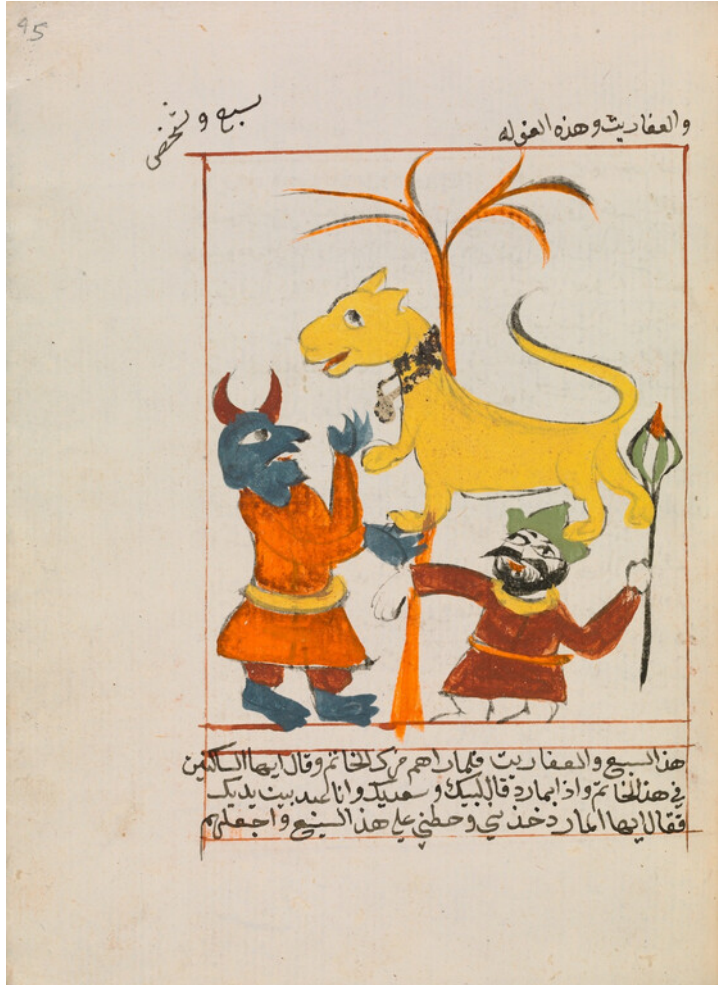 95
والعفاريت وهذه الغوله
سبع وشخص
هذ السبع والعفاريت فلما راهم حرك الخاتم وقال ايها الساكنين
في هذ الخاتم واذا بمارد قال لبيك وسعديك وانا لعبد بين يديك
فقال ايها المارد خذني وحطني على هذ السبع واجعلهم